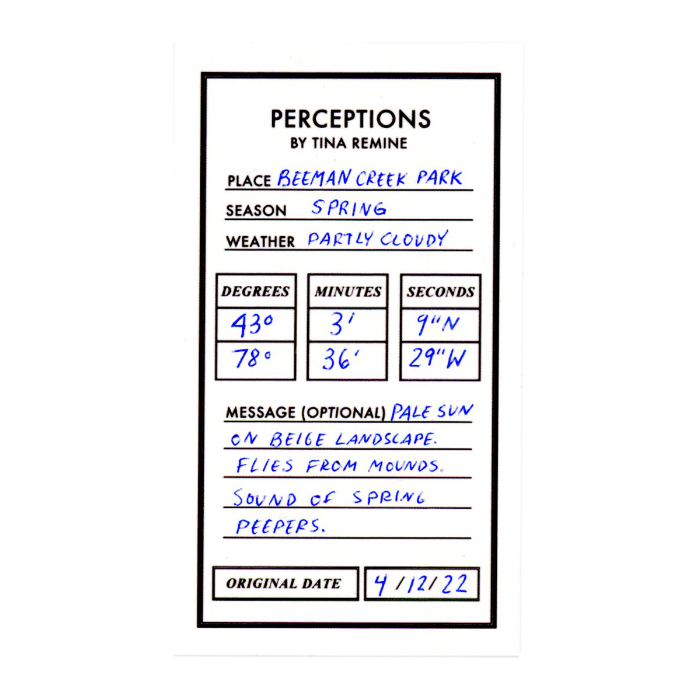 PERCEPTIONS
BY TINA REMINE
PLACE BEEMAN CREEK PARK
SEASON SPRING
WEATHER PARTLY CLOUDY
DEGREES MINUTES SECONDS
43° 3' 9"N
78° 36' 29"W
MESSAGE (OPTIONAL) PALE SUN
ON BEIGE LANDSCAPE.
FLIES FROM MOUNDS.
SOUND OF SPRING
PEEPERS.
ORIGINAL DATE 4/12/22